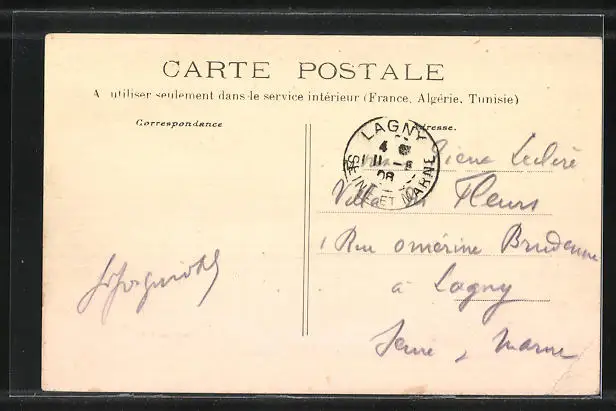 CARTE POSTALE
A utiliser seulement dans le service intérieur (France, Algérie, Tunisie)
Correspondance
Adresse.
LAGNY
4
11 - 8
08
SEINE ET MARNE
Leclère
Villa des Fleurs
1 Rue Omérine Brudenne
à Lagny
Seine & Marne